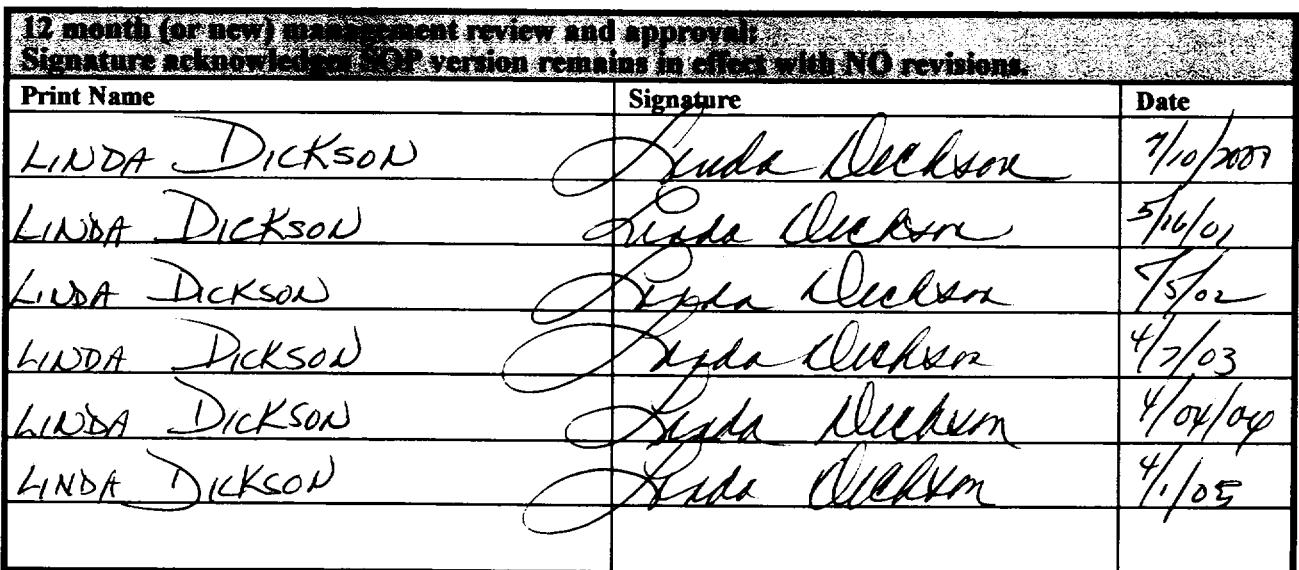 12 month (or new) management review and approval:
Signature acknowledges SOP version remains in effect with NO revisions.
Print Name Signature Date
LINDA DICKSON Linda Dickson
LINDA DICKSON Linda Dickson 5/16/01
LINDA DICKSON Linda Dickson
LINDA DICKSON Linda Dickson 4/7/03
LINDA DICKSON Linda Dickson 4/04/04
LINDA DICKSON Linda Dickson 4/1/05